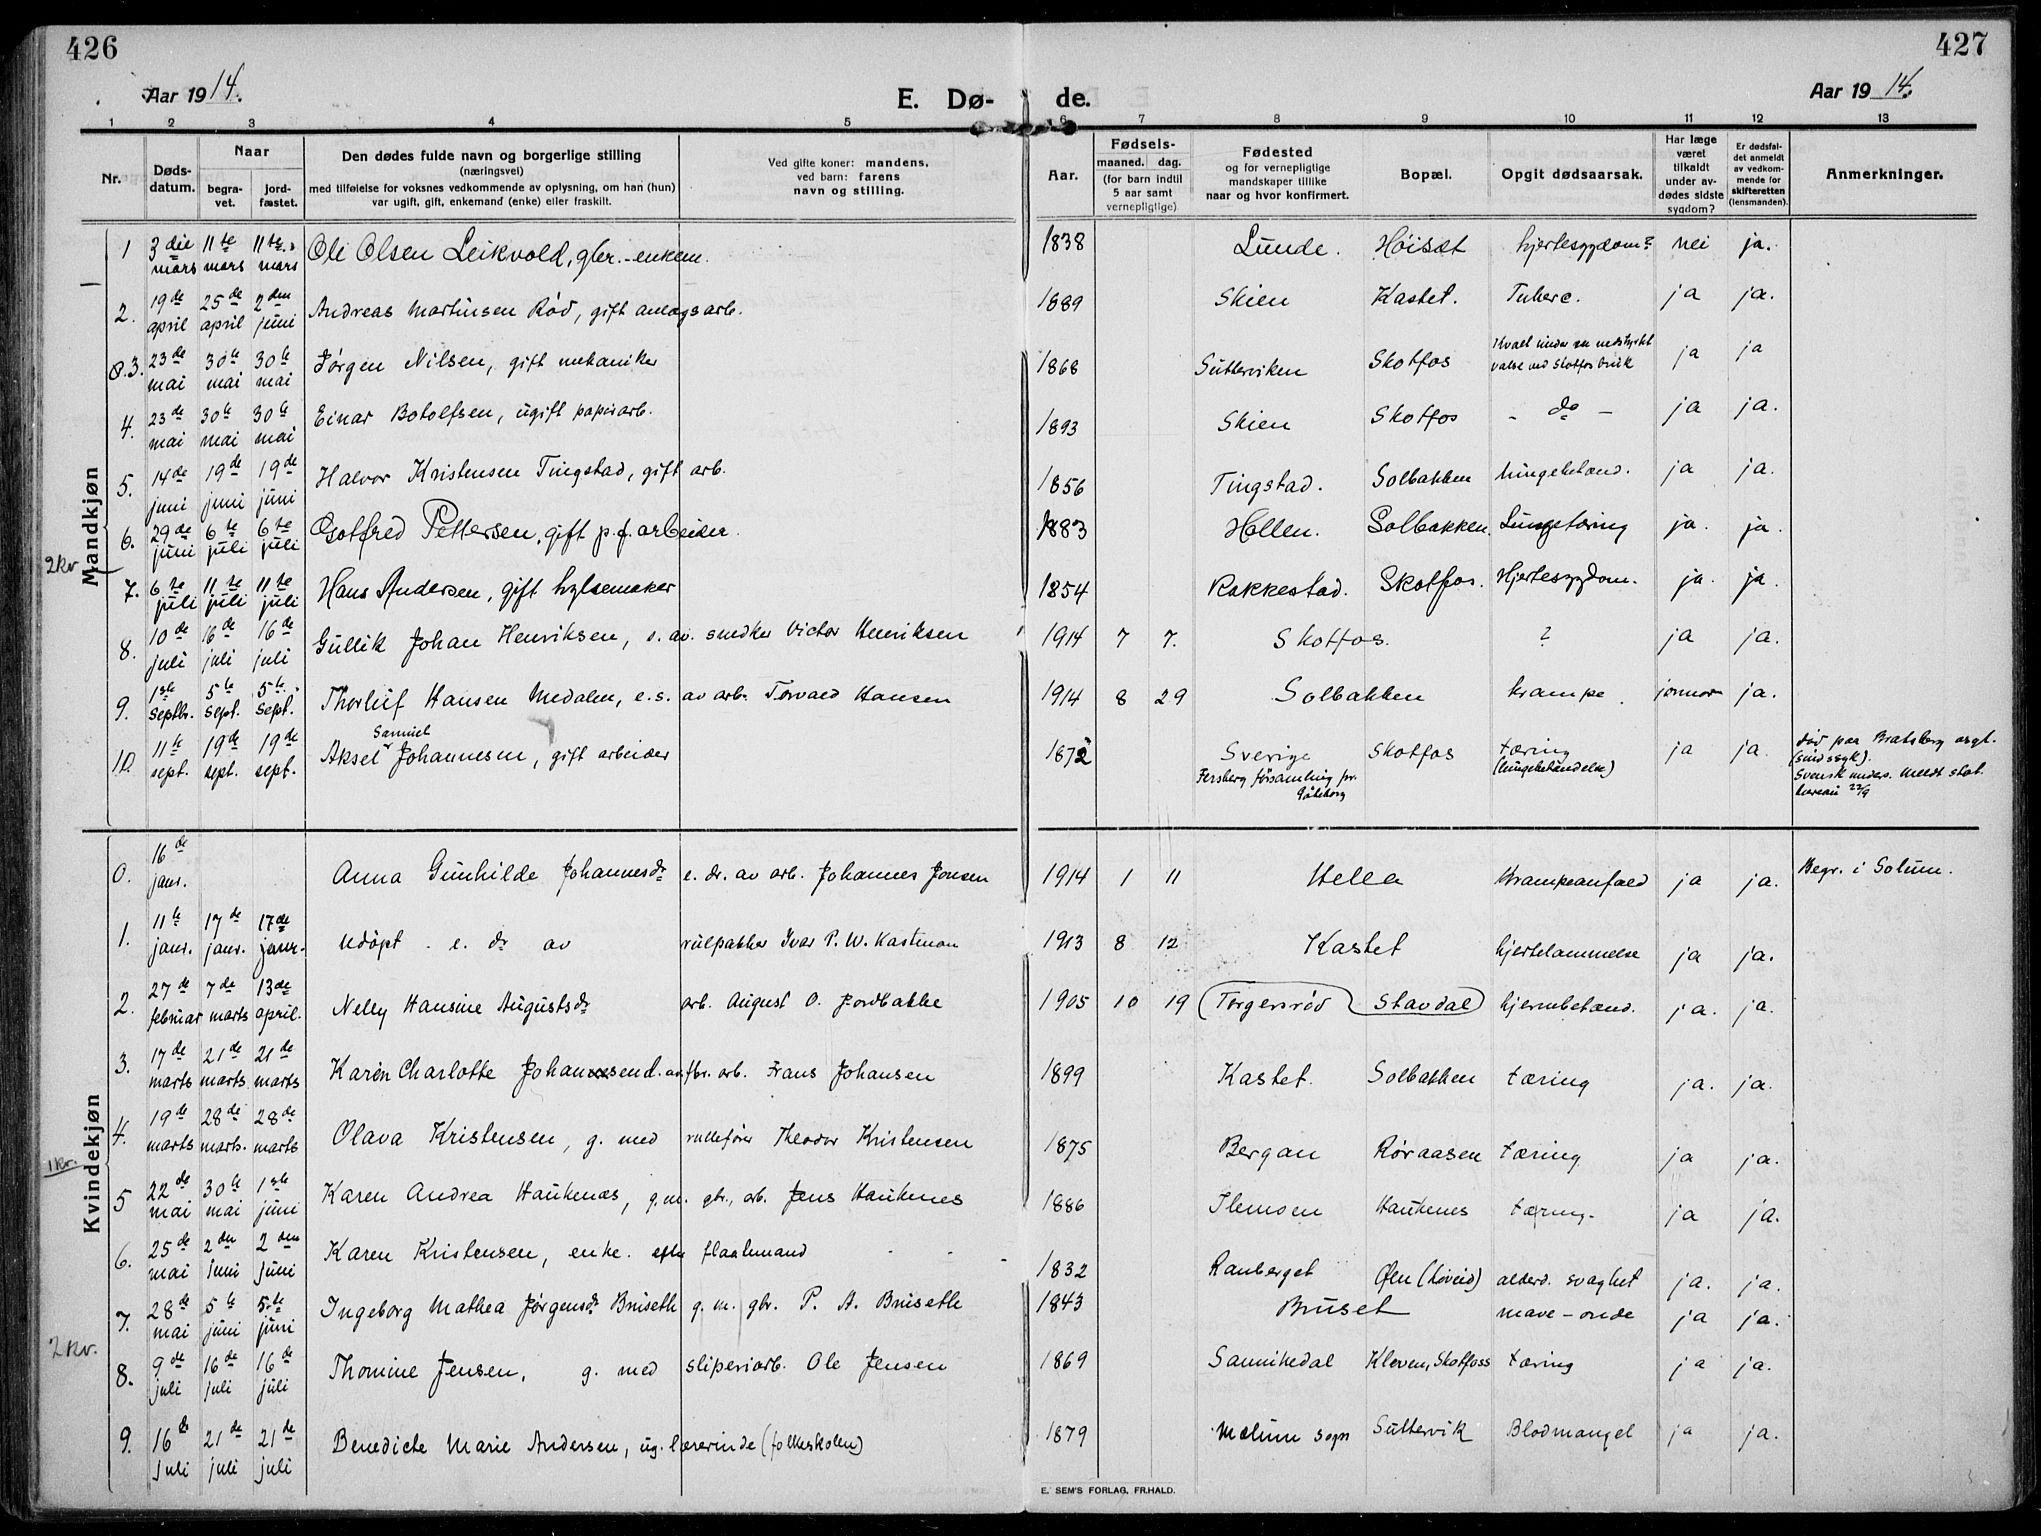 426
427
Aar 1914.
E. Dø-de.
Aar 1914.
1 2 3 4 5 6 7 8 9 10 11 12 13
Nr.
Døds-datum.
Naar
begra-vet.
jord-fæstet.
Den dødes fulde navn og borgerlige stilling
(næringsvei)
med tilføielse for voksnes vedkommende av oplysning, om han (hun)
var ugift, gift, enkemand (enke) eller fraskilt.
Ved gifte koner: mandens,
ved barn: farens
navn og stilling.
Aar.
Fødsels-
maaned. dag.
(for barn indtil
5 aar samt
vernepligtige)
Fødested
og for vernepligtige
mandskaper tillike
naar og hvor konfirmert.
Bopæl.
Opgit dødsaarsak.
Har læge
været
tilkaldt
under av-
dødes sidste
sygdom?
Er dødsfal-
det anmeldt
av vedkom-
mende for
skifteretten
(lensmanden).
Anmerkninger.
Mandkjøn
1 3die mars 11te mars 11te mars Ole Olsen Leikvold, gbr.-enkem. 1838 Lunde. Høisæt hjertesygdom? nei ja.
2. 19de april 25de april 2den juni Andreas Martinsen Rød, gift anlægsarb. 1889 Skien Kastet. Tuberc. ja ja.
3. 23de mai 30te mai 30te mai Jørgen Nilsen, gift mekaniker 1868 Sutterviken Skotfos valse ved Skotfos bruk ja ja
4. 23de mai 30te mai 30te mai Einar Botolfsen, ugift papirarb. 1893 Skien Skotfos - do - ja ja.
5. 14de juni 19de juni 19de juni Halvor Kristensen Tingstad, gift arb. 1856 Tingstad. Solbakken lungebetænd. ja ja.
6. 29de juni 6te juli 6te juli Gotfred Pettersen, gift p.f. arbeider. 1883 Hollen. Solbakken. Lungetæring ja. ja.
2kr
7. 6te juli 11te juli 11te juli Hans Andersen, gift hylsemaker 1854 Rakkestad. Skotfos. Hjertesygdom. ja. ja.
8. 10de juli 16de juli 16de juli Gullik Johan Henriksen, s. av. snedker Victor Henriksen 1914 7 7. Skotfos. ? ja ja.
9. 1ste septbr. 5te sept. 5te sept. Thorluf Hansen Medalen, e.s. av arb. Torvald Hansen 1914 8 29 Solbakken krampe. jormor ja.
10. 11te sept. 19de sept. 19de sept. Aksel Samuel Johannesen, gift arbeider 1872 Sverige Skotfos tæring ja ja. død paa Bratsberg asyl.
Fersberg församling pr. Göteborg (lungebetændelse) (sindssyk).
Svensk unders. Meldt stat.
bureau 22/9
Kvindekjøn
0. 16de janr. Anna Gunhilde Johannesdr e. dr. av arb. Johannes Jonsen 1914 1 11 Hella Krampeanfald ja ja. Begr. i Solum.
1. 11te janr. 17de janr. 17de janr. Udøpt e. dr av rulpakker Ivar P. W. Kastman 1913 8 12 Kastet hjertelammelse ja ja.
2. 27de februar 7de marts 13de april. Nelly Hansine Augustsdr arb. August O. Jordbakke 1905 10 19 Torgersrød Stavdal hjernebetænd. ja. ja.
3. 17de marts 21de marts 21de marts Karen Charlotte Johansen d. av fbr. arb. Frans Johansen 1899 Kastet. Solbakken tæring ja. ja.
4. 19de marts 28de marts. 28de marts Olava Kristensen, g. med rullefører Theodor Kristensen 1875 Bergan Røraasen tæring ja ja.
1kr.
5 22de mai 30te mai 1ste juni Karen Andrea Haukenæs, g.m. gbr., arb. Jens Haukenes 1886 Ilemoen Haukenes tæring. ja ja.
6. 25de mai 2den juni 2den juni Karen Kristensen, enke. efter flaatemand 1832 Ranberget Øen (Løveid) alderd. svaghet ja. ja.
7. 28de mai 5te juni 5te juni Ingeborg Mathea Jørgensdr Bruseth g. m. gbr. P. A. Bruseth 1843 Bruset mave-onde ja ja.
2kr.
8. 9de juli 16de juli 16de juli Thomine Jensen, g. med sliperiarb. Ole Jensen 1869 Sannikedal Kleven, Skotfoss tæring ja ja.
9. 16de juli 21de juli 21de juli Benedicte Marie Andersen, ug. lærerinde (folkeskolen) 1879 Melum sogn Suttervik Blodmangel ja ja.
E. SEM'S FORLAG, FR.HALD.